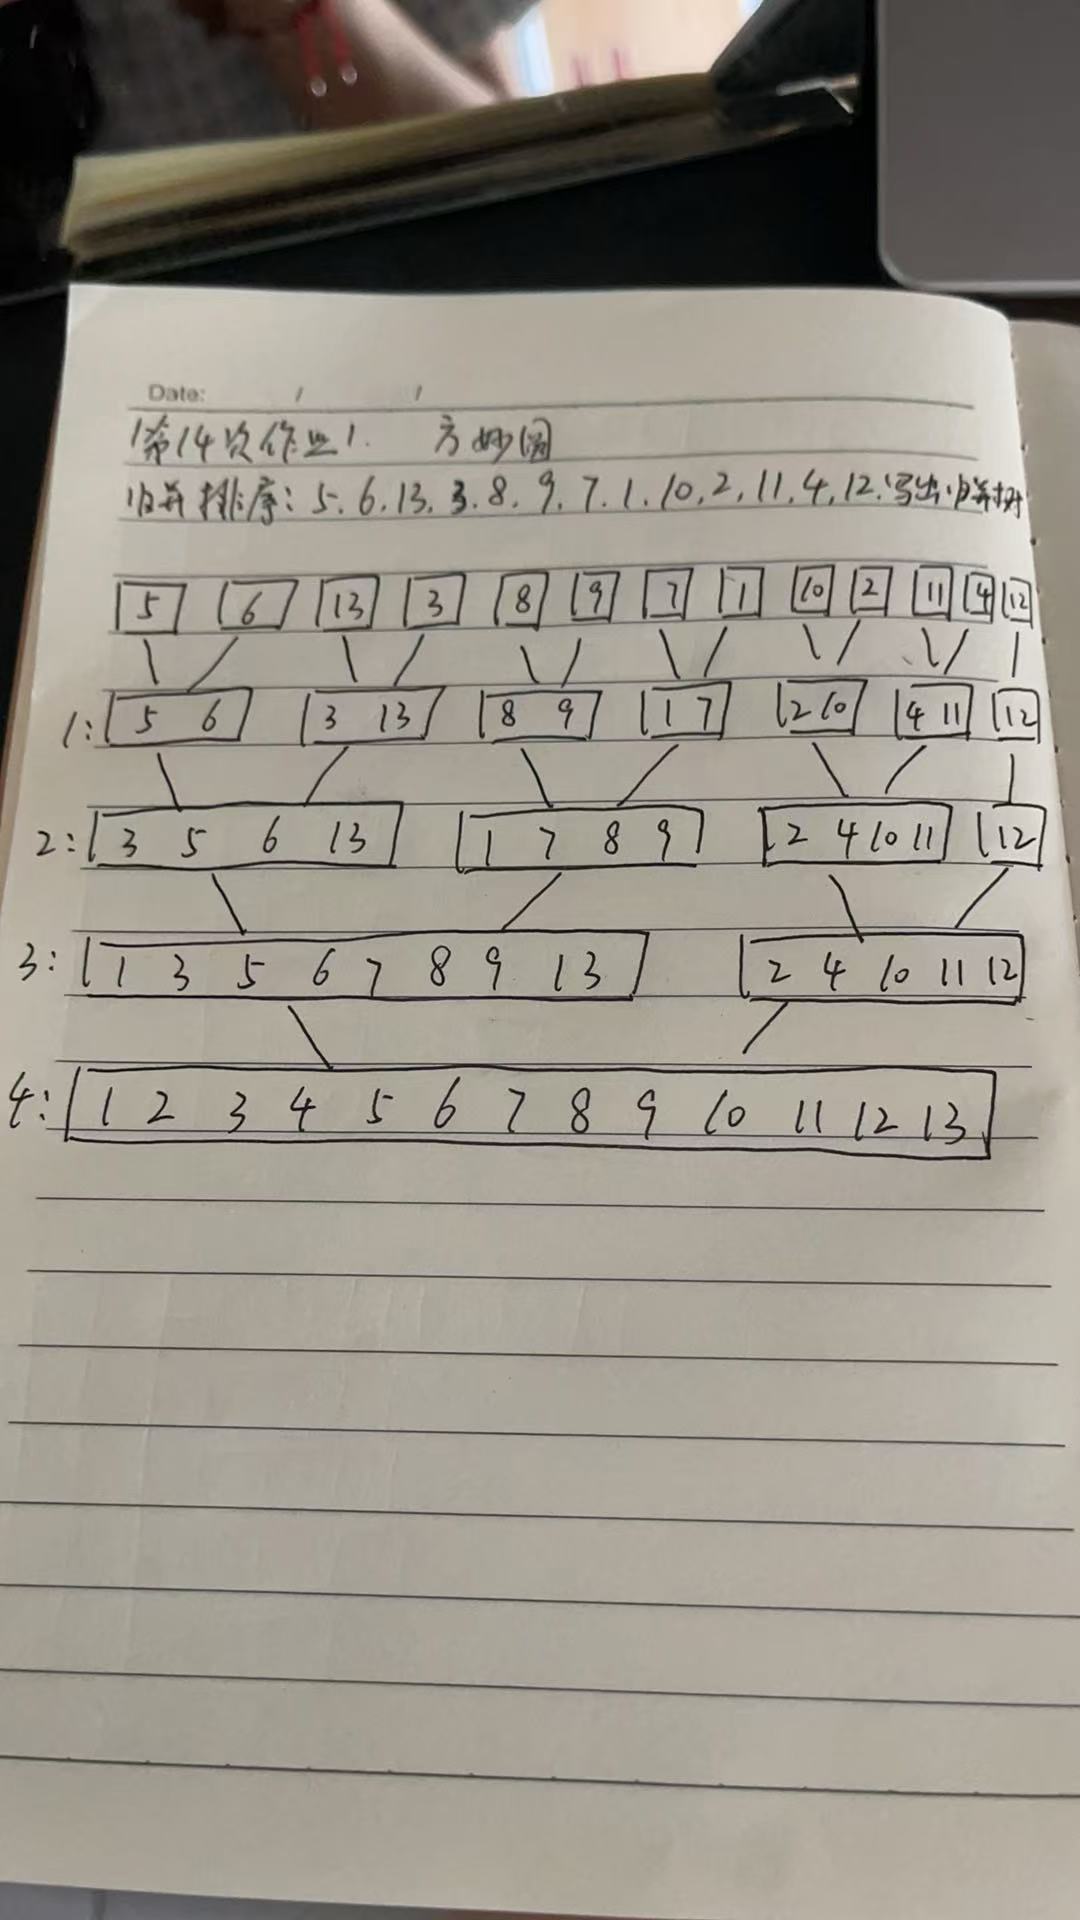 Date: / /
第14次作业1. 方妙圆
归并排序: 5, 6, 13, 3, 8, 9, 7, 1, 10, 2, 11, 4, 12. 写出归并树
5 6 13 3 8 9 7 1 10 2 11 4 12
1: 5 6 3 13 8 9 1 7 2 10 4 11 12
2: 3 5 6 13 1 7 8 9 2 4 10 11 12
3: 1 3 5 6 7 8 9 13 2 4 10 11 12
4: 1 2 3 4 5 6 7 8 9 10 11 12 13